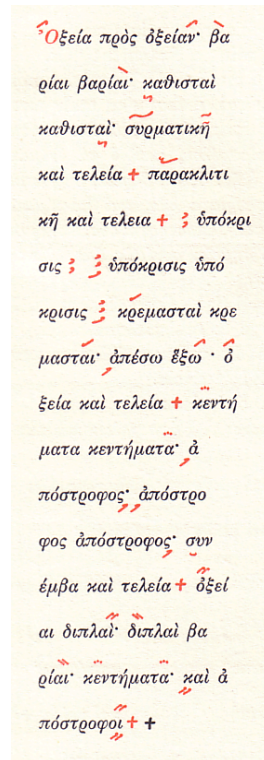 Ὀξεία πρὸς ὀξείαν· βα
ρίαι βαρίαι· καθισταὶ
καθισταὶ· συρματικῆ
καὶ τελεία + παρακλιτι
κῆ καὶ τελεια + ὑπόκρι
σις ὑπόκρισις ὑπό
κρισις κρεμασταὶ κρε
μασται· ἀπέσω ἔξω · ὀ
ξεία καὶ τελεία + κεντή
ματα κεντήματα· ἀ
πόστροφος· ἀπόστρο
φος ἀπόστροφος· συν
έμβα καὶ τελεία + ὀξεί
αι διπλαὶ· διπλαὶ βα
ρίαι· κεντήματα· καὶ ἀ
πόστροφοι + +